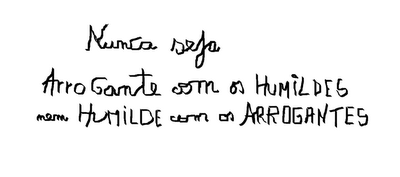 Nunca seja
Arrogante com os HUMILDES
nem HUMILDE com os ARROGANTES